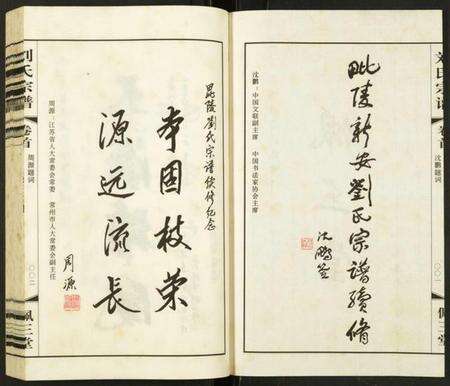 卷首
沈鹏题词
毗陵新安劉氏宗譜續修
沈鹏签
沈鹏：中国文联副主席 中国书法家协会主席
毘陵劉氏宗谱续修纪念
本固枝荣
源远流长
周源
周源 江苏省人大常委会常委 常州市人大常委会副主任
刘氏宗谱
卷首
周源题词
〇〇二
佩三堂